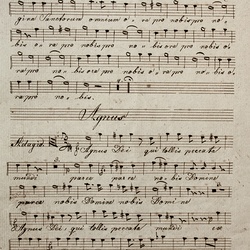 gina Sanctorum omnium o, ra pro nobis pro no-
bis o, ra pro nobis pro no- bis ora pro nobis o,
ra pro no- bis ora pro nobis o, ra pro nobis o,
ra pro no- bis.
Agnus
Adagio. Agnus Dei qui tollis peccata
mundi parce parce no- bis Domine
parce nobis Domine nobis Domine
Agnus Dei, qui tollis peccata mundi ex